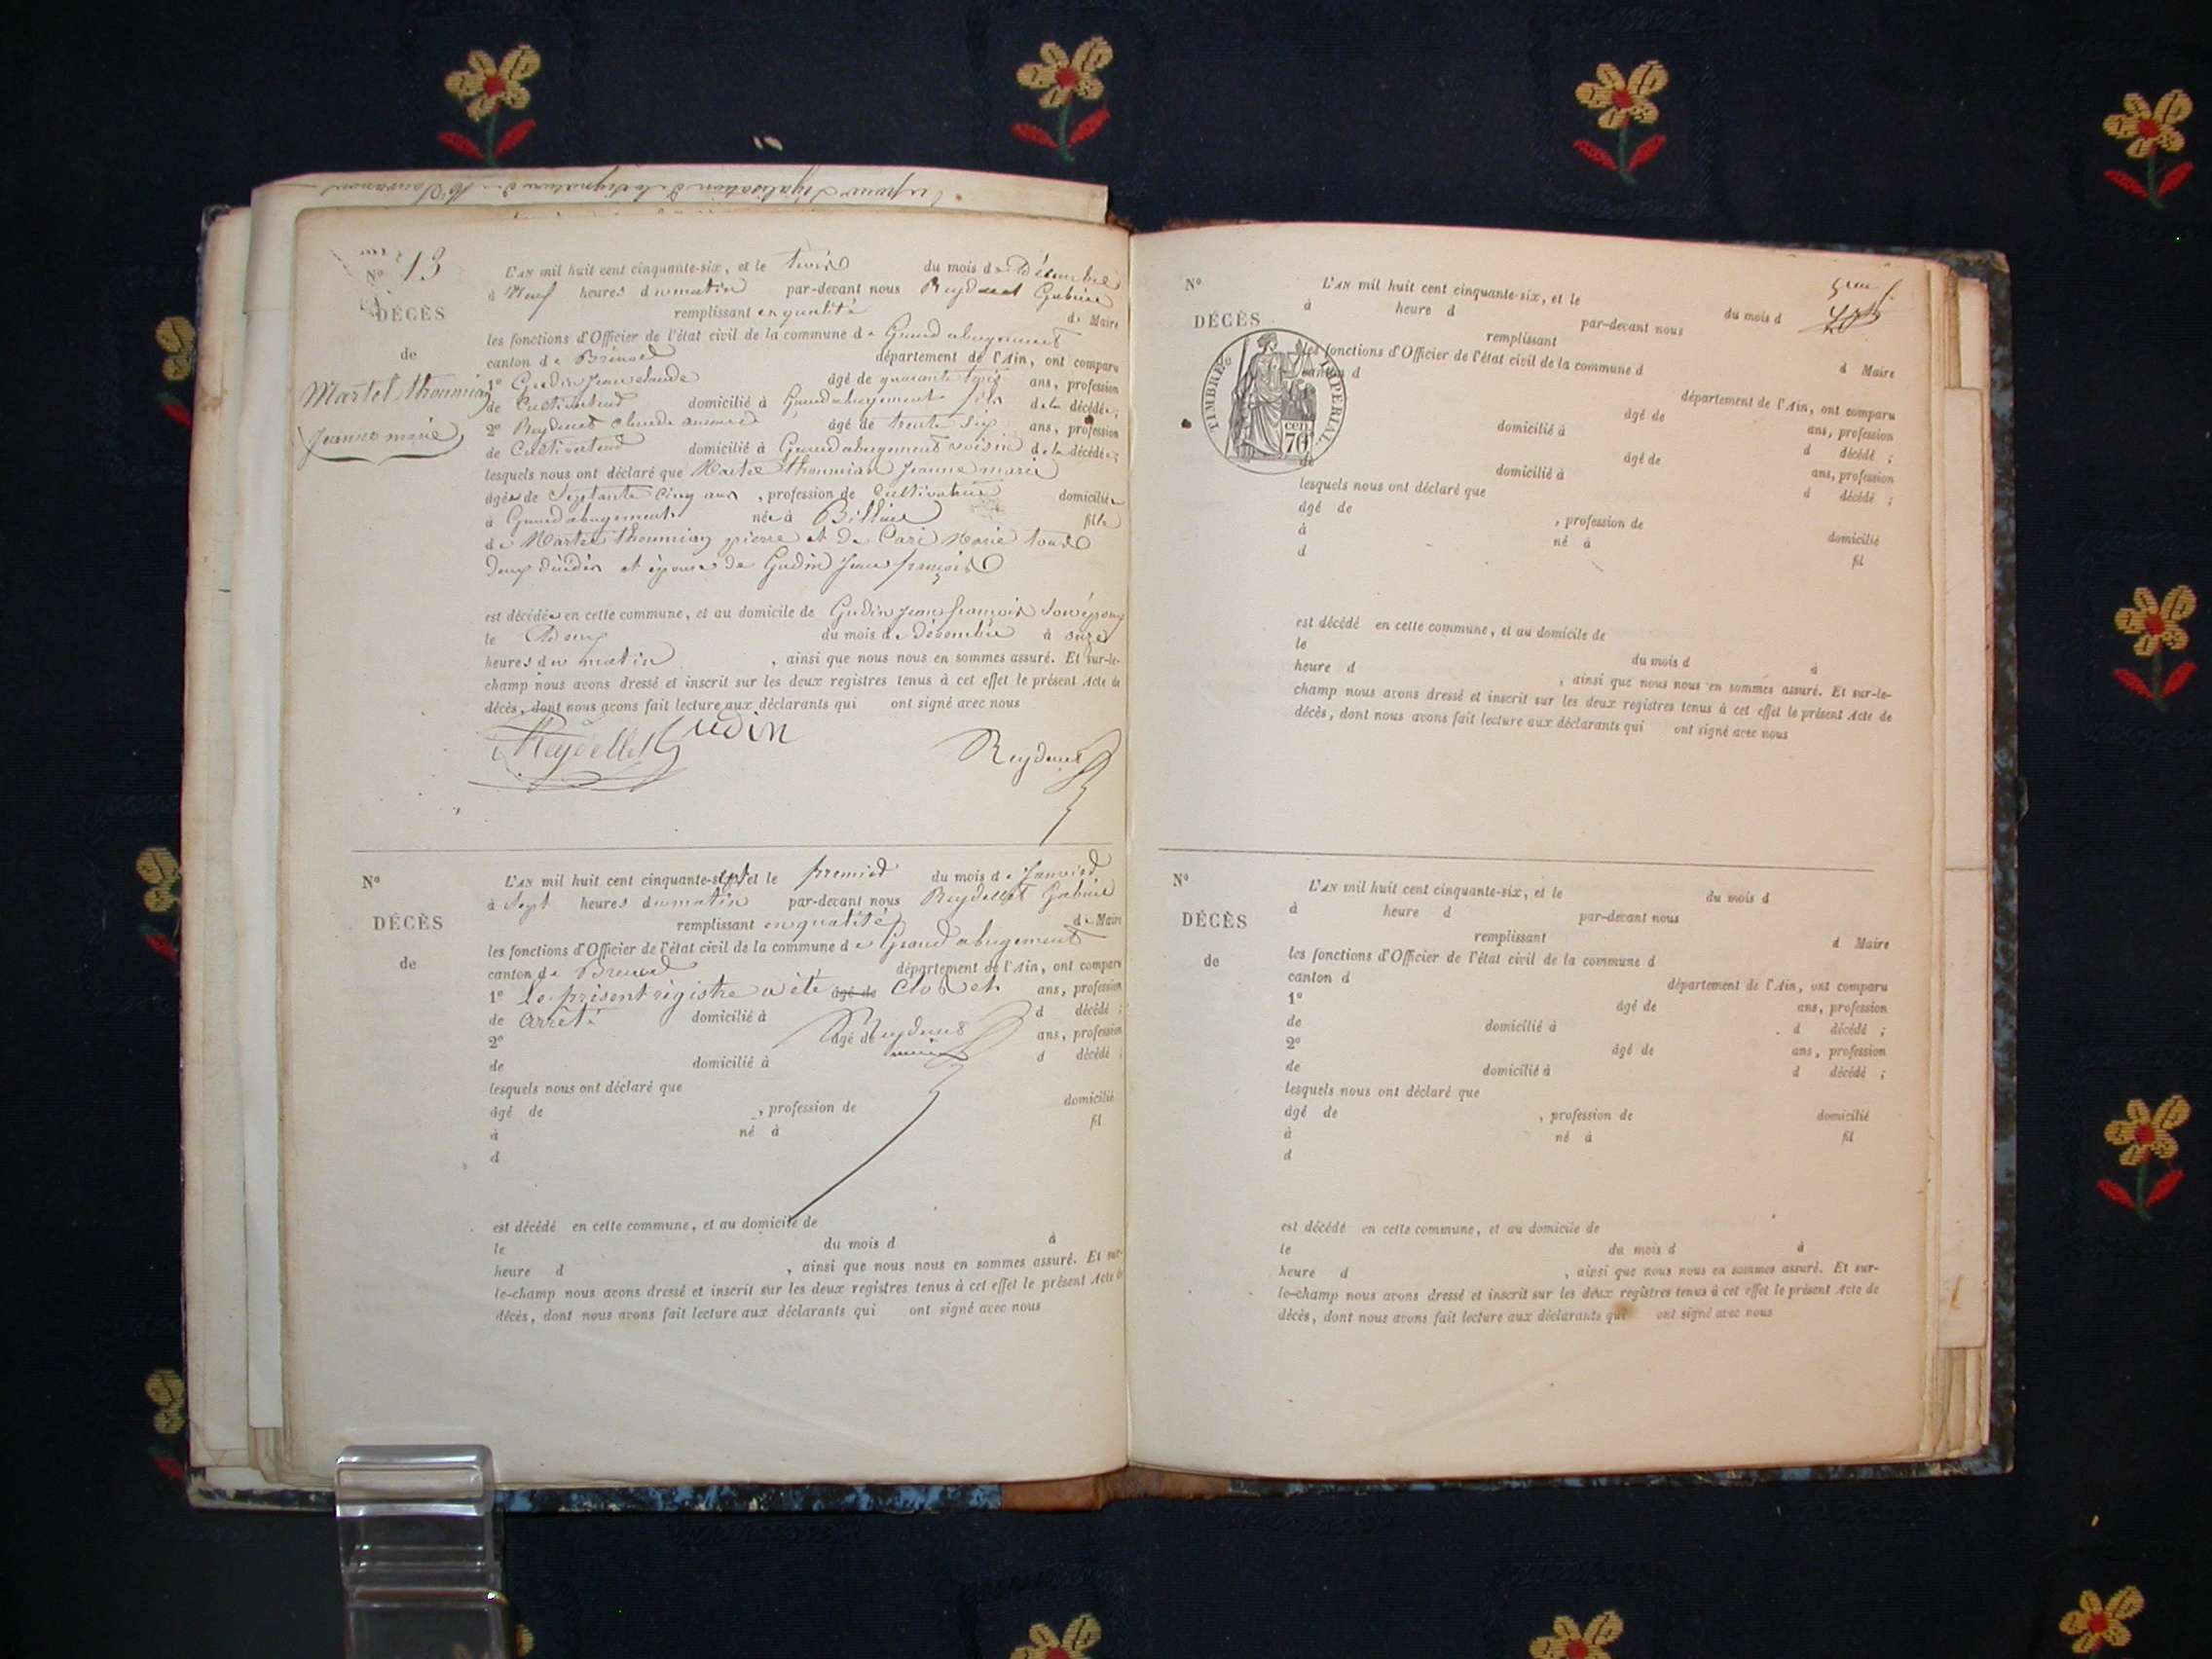 N° 13
DÉCÈS
de
Martel thounian
Jeanne marie
L'AN mil huit cent cinquante-six, et le trois du mois de Décembre
à Neuf heures du matin par-devant nous Reydellet Gabriel
remplissant en qualité de Maire
les fonctions d'Officier de l'état civil de la commune de Grand abergement
canton de Brénod département de l'Ain, ont comparu
1° Gudin Jean claude âgé de quarante trois ans, profession
de Cultivateur domicilié à Grand abergement fils de la décédée;
2° Reydellet claude âgé de trente six ans, profession
de Cultivateur domicilié à Grand abergement voisin de la décédée;
lesquels nous ont déclaré que Martel thounian Jeanne marie
âgée de Septante cinq ans, profession de Cultivatrice domiciliée
à Grand abergement née à fille
de Martel thounian pierre et de Marie tous
Deux décédés et épouse de Gudin Jean françois
est décédée en cette commune, et au domicile de Gudin Jean françois Son époux
le Deux du mois de décembre à onze
heures du matin, ainsi que nous nous en sommes assuré. Et sur-le-
champ nous avons dressé et inscrit sur les deux registres tenus à cet effet le présent Acte de
décès, dont nous avons fait lecture aux déclarants qui ont signé avec nous
Reydellet Gudin Reydellet
N°
DÉCÈS
de
L'AN mil huit cent cinquante-sept et le premier du mois de Janvier
à Sept heures du matin par-devant nous Reydellet Gabriel
remplissant en qualité de Maire
les fonctions d'Officier de l'état civil de la commune de Grand abergement
canton de Brenod département de l'Ain, ont comparu
1° Le présent régistre a été âgé de Clos et ans, profession
de arrêté domicilié à d décédé ;
2° âgé de Reydellet ans, profession
de domicilié à d décédé ;
lesquels nous ont déclaré que
âgé de , profession de domicilié
à né à fil
d
est décédé en cette commune, et au domicile de
le du mois d à
heure d , ainsi que nous nous en sommes assuré. Et sur-
le-champ nous avons dressé et inscrit sur les deux registres tenus à cet effet le présent Acte de
décès, dont nous avons fait lecture aux déclarants qui ont signé avec nous
N°
DÉCÈS
TIMBRE IMPÉRIAL
70 cen
L'AN mil huit cent cinquante-six, et le du mois d
à heure d par-devant nous
remplissant d Maire
les fonctions d'Officier de l'état civil de la commune d
canton d département de l'Ain, ont comparu
âgé de ans, profession
domicilié à d décédé ;
âgé de ans, profession
de domicilié à d décédé ;
lesquels nous ont déclaré que
âgé de , profession de domicilié
à né à fil
d
est décédé en cette commune, et au domicile de
le du mois d à
heure d , ainsi que nous nous en sommes assuré. Et sur-le-
champ nous avons dressé et inscrit sur les deux registres tenus à cet effet le présent Acte de
décès, dont nous avons fait lecture aux déclarants qui ont signé avec nous
N°
DÉCÈS
de
L'AN mil huit cent cinquante-six, et le du mois d
à heure d par-devant nous
remplissant d Maire
les fonctions d'Officier de l'état civil de la commune d
canton d département de l'Ain, ont comparu
1° âgé de ans, profession
de domicilié à d décédé ;
2° âgé de ans, profession
de domicilié à d décédé ;
lesquels nous ont déclaré que
âgé de , profession de domicilié
à né à fil
d
est décédé en cette commune, et au domicile de
le du mois d à
heure d , ainsi que nous nous en sommes assuré. Et sur-
le-champ nous avons dressé et inscrit sur les deux registres tenus à cet effet le présent Acte de
décès, dont nous avons fait lecture aux déclarants qui ont signé avec nous